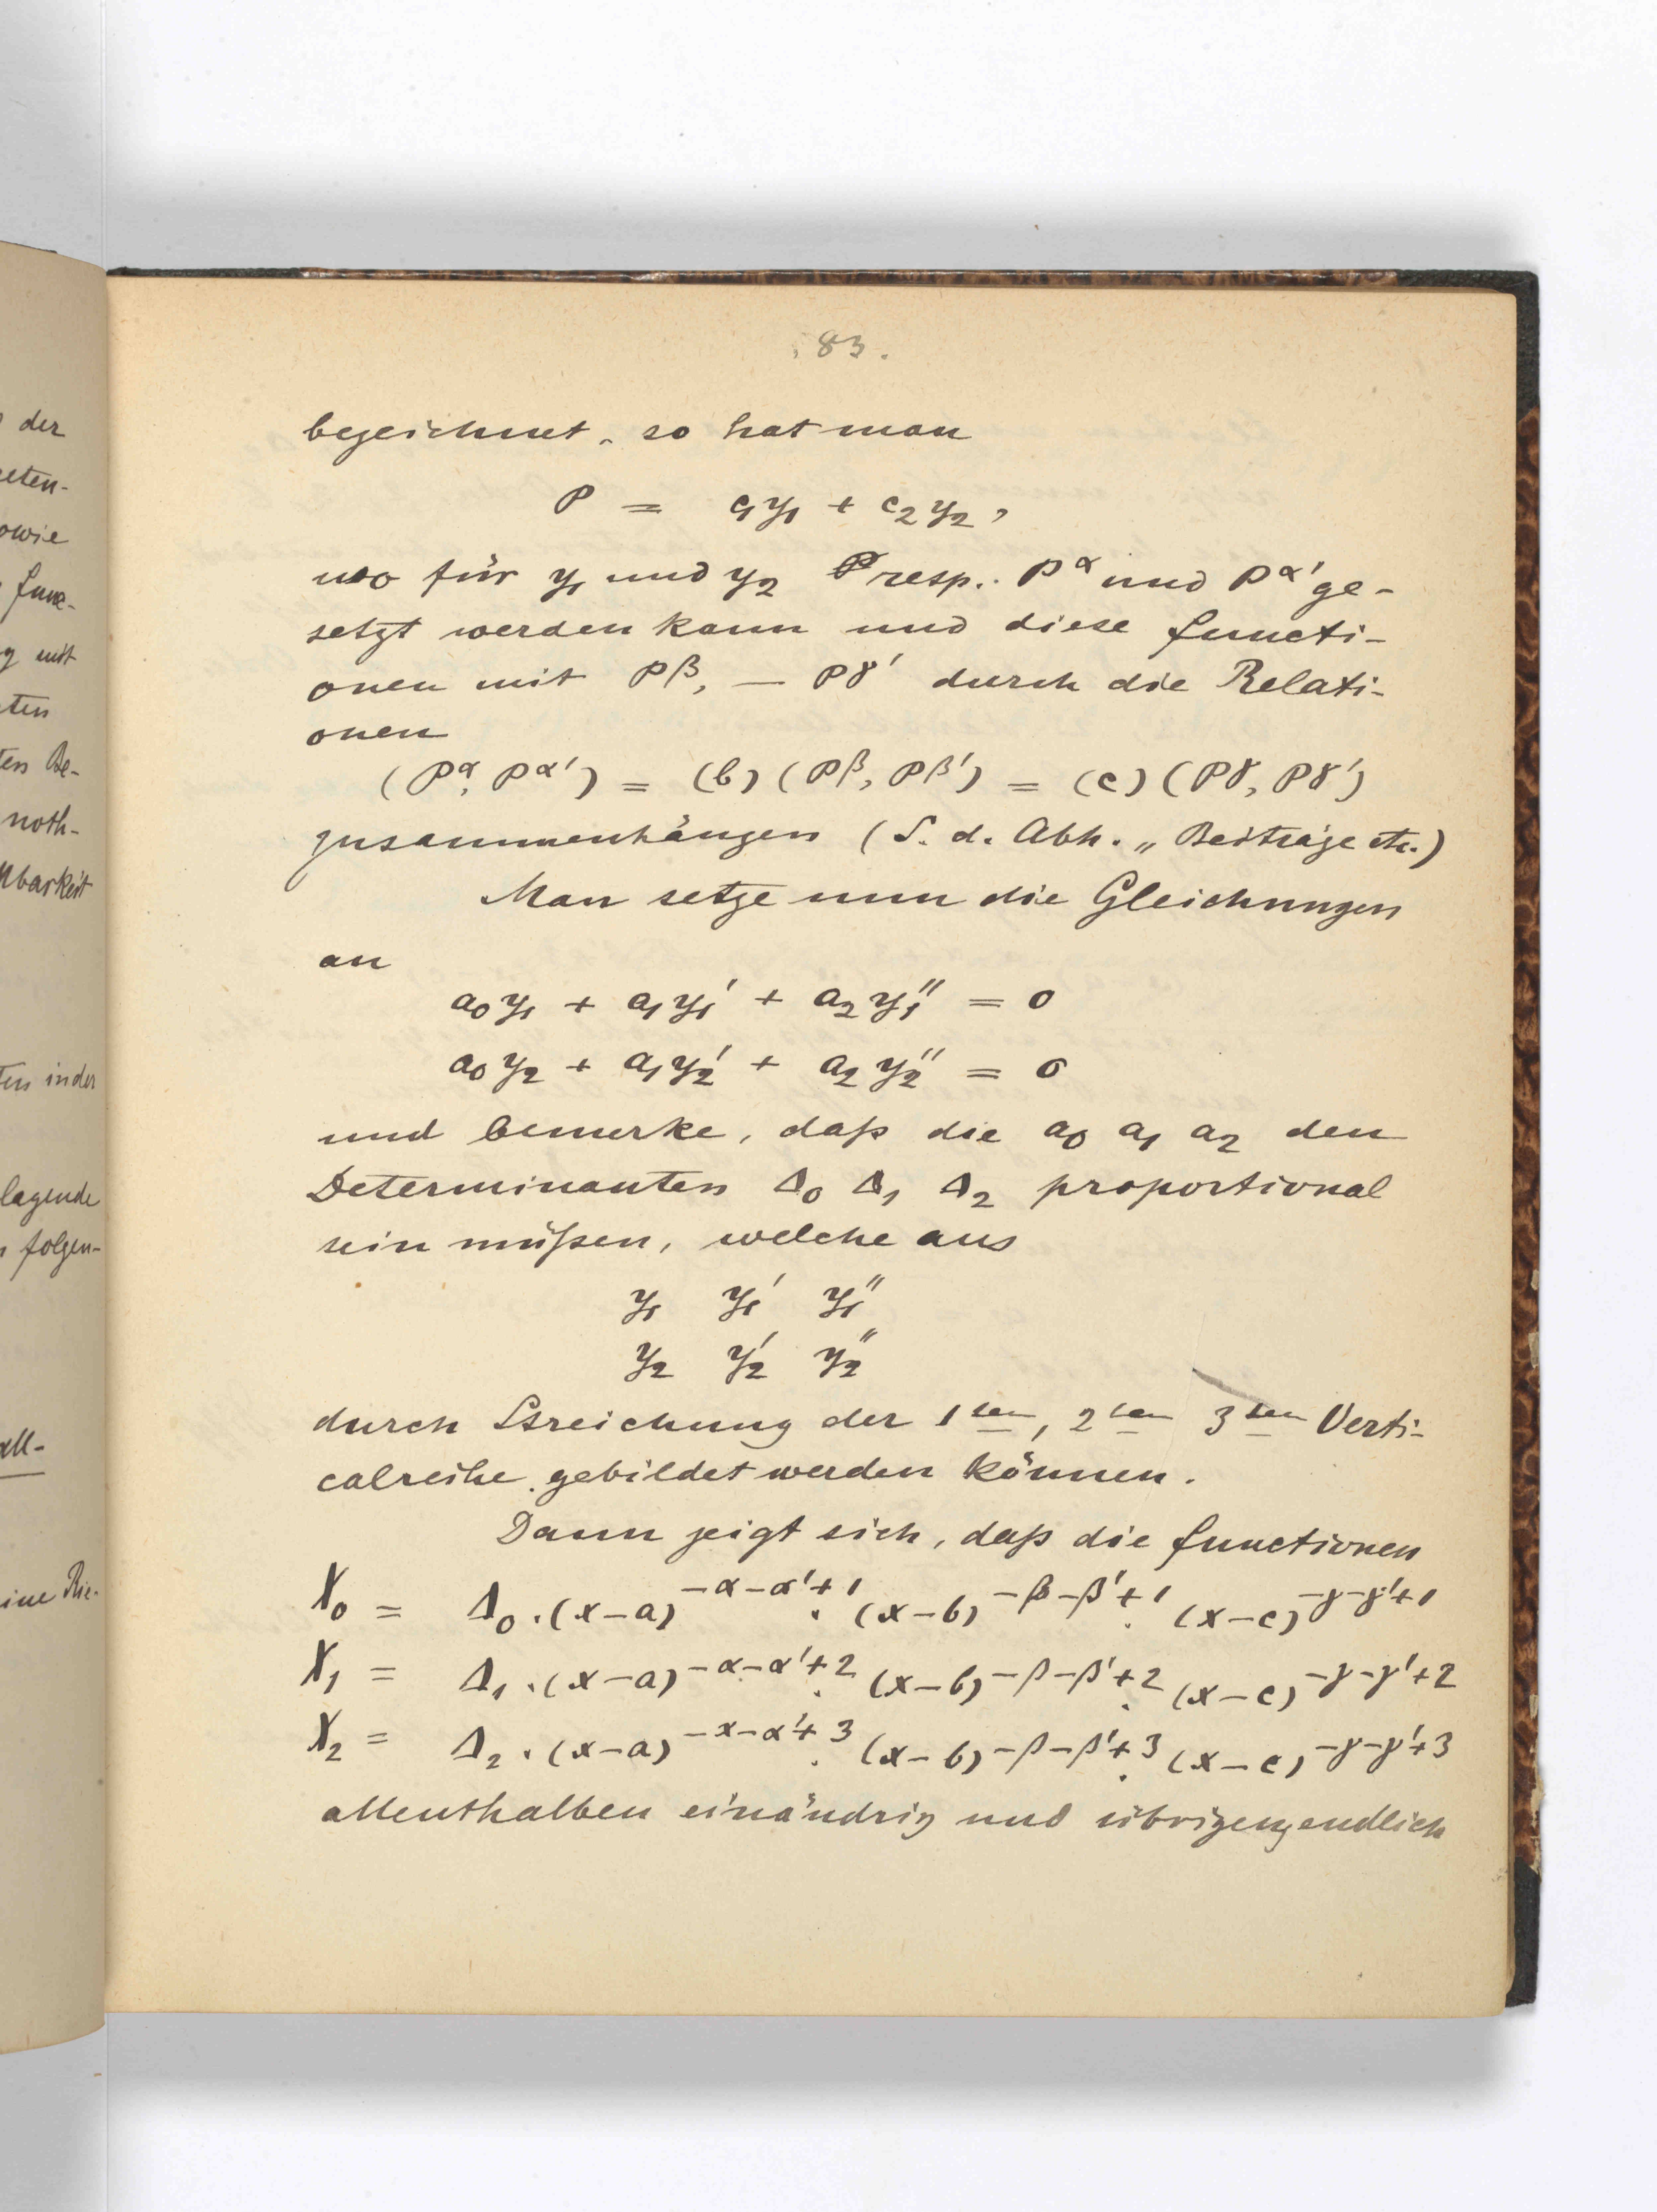 der
owie
g mit
ten
noth-
lbarkeit
ten in der
lagende
folgen-
all-
eine Rie-
83.
bezeichnet, so hat man
P = c₁y₁ + c₂y₂,
wo für y₁ und y₂ P resp. Pᵅ und Pᵅ' ge-
setzt werden kann und diese Functi-
onen mit Pᵝ, — Pᵞ' durch die Relati-
onen
(Pᵅ, Pᵅ') = (b) (Pᵝ, Pᵝ') = (c) (Pᵞ, Pᵞ')
zusammenhängen (S. d. Abh. „ Beiträge etc.)
Man setze nun die Gleichungen
an
a₀y₁ + a₁y₁' + a₂y₁'' = 0
a₀y₂ + a₁y₂' + a₂y₂'' = 0
und bemerke, daß die a₀ a₁ a₂ den
Determinanten Δ₀ Δ₁ Δ₂ proportional
sein müßen, welche aus
y₁ y₁' y₁''
y₂ y₂' y₂''
durch Streichung der 1ten, 2ten 3ten Verti-
calreihe gebildet werden können.
Dann zeigt sich, daß die Functionen
X₀ = Δ₀.(x-a)^{-α-α'+1}.(x-b)^{-β-β'+1}.(x-c)^{-γ-γ'+1}
X₁ = Δ₁.(x-a)^{-α-α'+2}.(x-b)^{-β-β'+2}.(x-c)^{-γ-γ'+2}
X₂ = Δ₂.(x-a)^{-α-α'+3}.(x-b)^{-β-β'+3}.(x-c)^{-γ-γ'+3}
allenthalben einändrig und übrigens endlich